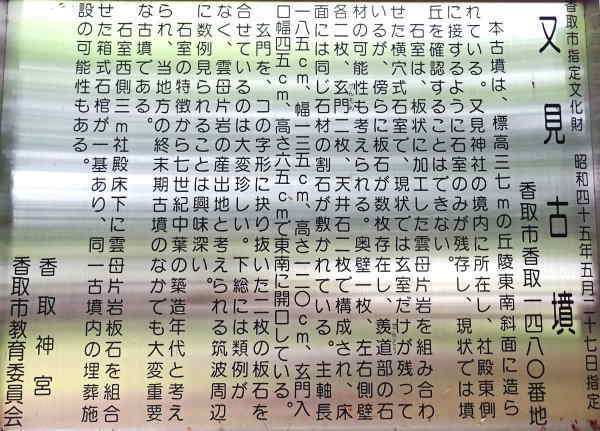 香取市指定文化財 昭和四十五年五月二十七日指定
又見古墳
香取市香取一四八〇番地
本古墳は、標高三七mの丘陵東南斜面に造ら
れている。又見神社の境内に所在し、社殿東側
に接するように石室のみが残存し、現状では墳
丘を確認することはできない。
石室は、板状に加工した雲母片岩を組み合わ
せた横穴式石室で、現状では玄室だけが残って
いるが、傍らに板石が数枚存在し、羨道部の石
材の可能性も考えられる。奥壁一枚、左右側壁
各二枚、玄門二枚、天井石二枚で構成され、床
面には同じ石材の割石が敷かれている。主軸長
一八五cm、幅一三五cm、高さ一二〇cm、玄門入
口幅四五cm、高さ六五cmで東南に開口している。
玄門を、コの字形に抉り抜いた二枚の板石を
合せているのは大変珍しい。下総には類例が
なく、雲母片岩の産出地と考えられる筑波周辺
に数例見られることは興味深い。
石室の特徴から七世紀中葉の築造年代と考え
られ、当地方の終末期古墳のなかでも大変重要
な古墳である。
石室西側三m社殿床下に雲母片岩板石を組合
せた箱式石棺が一基あり、同一古墳内の埋葬施
設の可能性もある。
香取神宮
香取市教育委員会